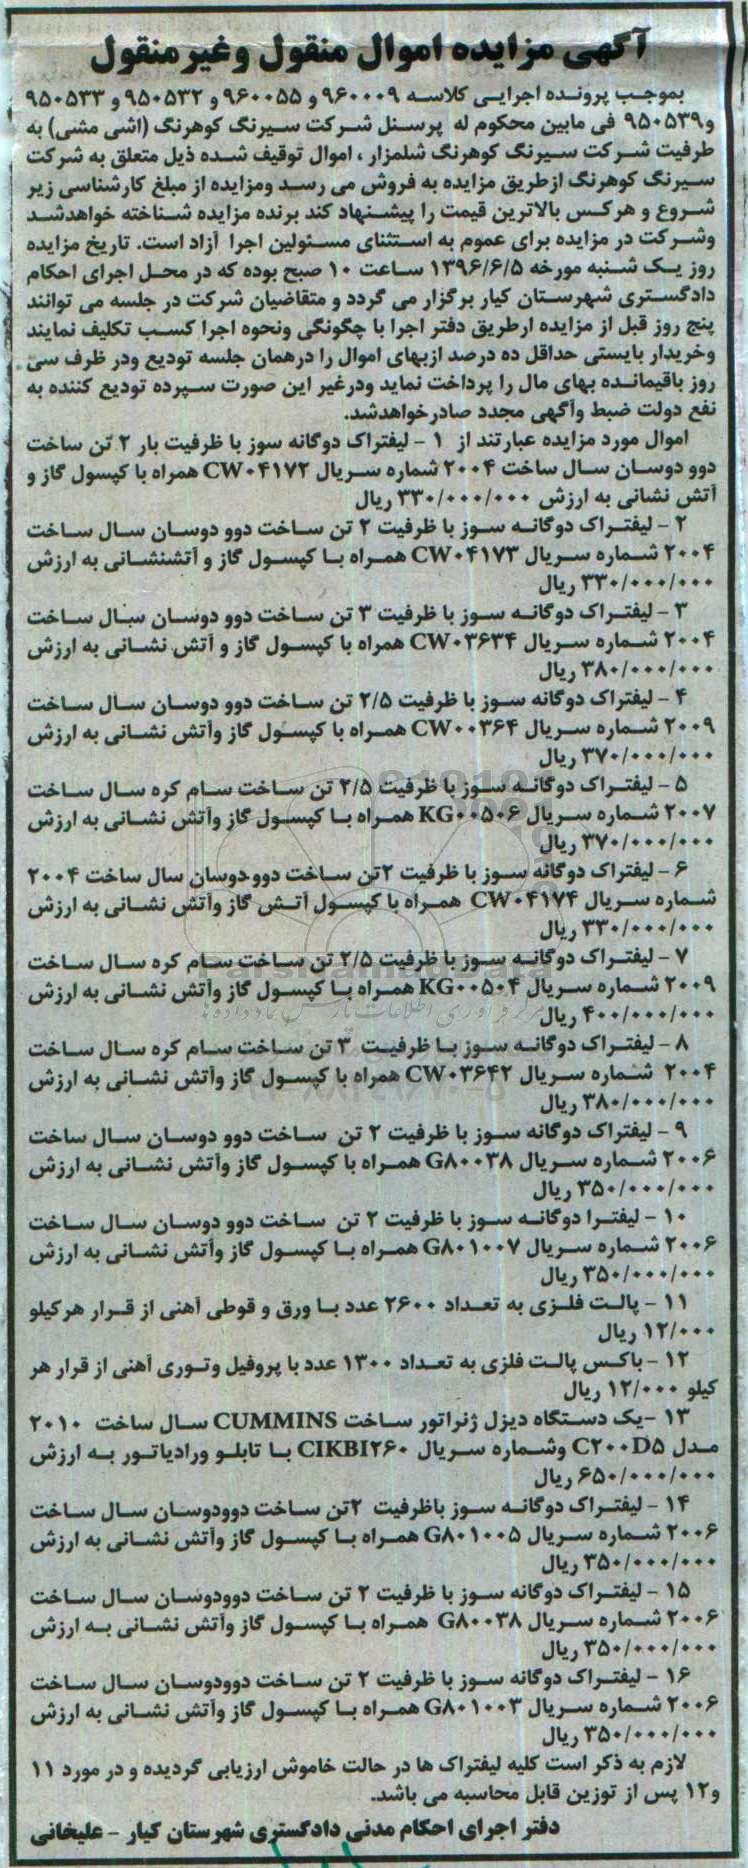 آگهی مزایده اموال منقول وغیر منقول
بموجب پرونده اجرایی کلاسه ۹۶۰۰۰۹ و ۹۶۰۰۵۵ و ۹۵۰۵۳۲ و ۹۵۰۵۳۳
و۹۵۰۵۳۹ فی مابین محکوم له پرسنل شرکت سیرنگ کوهرنگ (اشی مشی) به
طرفیت شرکت سیرنگ کوهرنگ شلمزار ، اموال توقیف شده ذیل متعلق به شرکت
سیرنگ کوهرنگ ازطریق مزایده به فروش می رسد ومزایده از مبلغ کارشناسی زیر
شروع و هرکس بالاترین قیمت را پیشنهاد کند برنده مزایده شناخته خواهدشد
وشرکت در مزایده برای عموم به استثنای مسئولین اجرا آزاد است. تاریخ مزایده
روز یک شنبه مورخه ۱۳۹۶/۶/۵ ساعت ۱۰ صبح بوده که در محل اجرای احکام
دادگستری شهرستان کیار برگزار می گردد و متقاضیان شرکت در جلسه می توانند
پنج روز قبل از مزایده ارطریق دفتر اجرا با چگونگی ونحوه اجرا کسب تکلیف نمایند
وخریدار بایستی حداقل ده درصد ازبهای اموال را درهمان جلسه تودیع ودر ظرف سی
روز باقیمانده بهای مال را پرداخت نماید ودرغیر این صورت سپرده تودیع کننده به
نفع دولت ضبط وآگهی مجدد صادرخواهدشد.
اموال مورد مزایده عبارتند از ۱ - لیفتراک دوگانه سوز با ظرفیت بار ۲ تن ساخت
دوو دوسان سال ساخت ۲۰۰۴ شماره سریال CW۰۴۱۷۲ همراه با کپسول گاز و
آتش نشانی به ارزش ۳۳۰/۰۰۰/۰۰۰ ریال
۲ - لیفتراک دوگانه سوز با ظرفیت ۲ تن ساخت دوو دوسان سال ساخت
۲۰۰۴ شماره سریال CW۰۴۱۷۳ همراه با کپسول گاز و آتشنشانی به ارزش
۳۳۰/۰۰۰/۰۰۰ ریال
۳ - لیفتراک دوگانه سوز با ظرفیت ۳ تن ساخت دوو دوسان سال ساخت
۲۰۰۴ شماره سریال CW۰۳۶۳۴ همراه با کپسول گاز و آتش نشانی به ارزش
۳۸۰/۰۰۰/۰۰۰ ریال
۴ - لیفتراک دوگانه سوز با ظرفیت ۲/۵ تن ساخت دوو دوسان سال ساخت
۲۰۰۹ شماره سریال CW۰۰۳۶۴ همراه با کپسول گاز وآتش نشانی به ارزش
۳۷۰/۰۰۰/۰۰۰ ریال
۵ - لیفتراک دوگانه سوز با ظرفیت ۲/۵ تن ساخت سام کره سال ساخت
۲۰۰۷ شماره سریال KG۰۰۵۰۶ همراه با کپسول گاز وآتش نشانی به ارزش
۳۷۰/۰۰۰/۰۰۰ ریال
۶ - لیفتراک دوگانه سوز با ظرفیت ۲تن ساخت دوو دوسان سال ساخت ۲۰۰۴
شماره سریال CW۰۴۱۷۴ همراه با کپسول آتش گاز وآتش نشانی به ارزش
۳۳۰/۰۰۰/۰۰۰ ریال
۷ - لیفتراک دوگانه سوز با ظرفیت ۲/۵ تن ساخت سام کره سال ساخت
۲۰۰۹ شماره سریال KG۰۰۵۰۴ همراه با کپسول گاز وآتش نشانی به ارزش
۴۰۰/۰۰۰/۰۰۰ ریال
۸ - لیفتراک دوگانه سوز با ظرفیت ۳ تن ساخت سام کره سال ساخت
۲۰۰۴ شماره سریال CW۰۳۶۴۲ همراه با کپسول گاز وآتش نشانی به ارزش
۳۸۰/۰۰۰/۰۰۰ ریال
۹ - لیفتراک دوگانه سوز با ظرفیت ۲ تن ساخت دوو دوسان سال ساخت
۲۰۰۶ شماره سریال G۸۰۰۳۸ همراه با کپسول گاز وآتش نشانی به ارزش
۳۵۰/۰۰۰/۰۰۰ ریال
۱۰ - لیفترا دوگانه سوز با ظرفیت ۲ تن ساخت دوو دوسان سال ساخت
۲۰۰۶ شماره سریال G۸۰۱۰۰۷ همراه با کپسول گاز وآتش نشانی به ارزش
۳۵۰/۰۰۰/۰۰۰ ریال
۱۱ - پالت فلزی به تعداد ۲۶۰۰ عدد با ورق و قوطی آهنی از قرار هرکیلو
۱۲/۰۰۰ ریال
۱۲ - باکس پالت فلزی به تعداد ۱۳۰۰ عدد با پروفیل وتوری آهنی از قرار هر
کیلو ۱۲/۰۰۰ ریال
۱۳ -یک دستگاه دیزل ژنراتور ساخت CUMMINS سال ساخت ۲۰۱۰
مدل C۲۰۰D۵ وشماره سریال CIKBI۲۶۰ با تابلو ورادیاتور به ارزش
۶۵۰/۰۰۰/۰۰۰ ریال
۱۴ - لیفتراک دوگانه سوز باظرفیت ۲تن ساخت دوودوسان سال ساخت
۲۰۰۶ شماره سریال G۸۰۱۰۰۵ همراه با کپسول گاز وآتش نشانی به ارزش
۳۵۰/۰۰۰/۰۰۰ ریال
۱۵ - لیفتراک دوگانه سوز با ظرفیت ۲ تن ساخت دوودوسان سال ساخت
۲۰۰۶ شماره سریال G۸۰۰۳۸ همراه با کپسول گاز وآتش نشانی به ارزش
۳۵۰/۰۰۰/۰۰۰ ریال
۱۶ - لیفتراک دوگانه سوز با ظرفیت ۲ تن ساخت دوودوسان سال ساخت
۲۰۰۶ شماره سریال G۸۰۱۰۰۳ همراه با کپسول گاز وآتش نشانی به ارزش
۳۵۰/۰۰۰/۰۰۰ ریال
لازم به ذکر است کلیه لیفتراک ها در حالت خاموش ارزیابی گردیده و در مورد ۱۱
و۱۲ پس از توزین قابل محاسبه می باشد.
دفتر اجرای احکام مدنی دادگستری شهرستان کیار - علیخانی